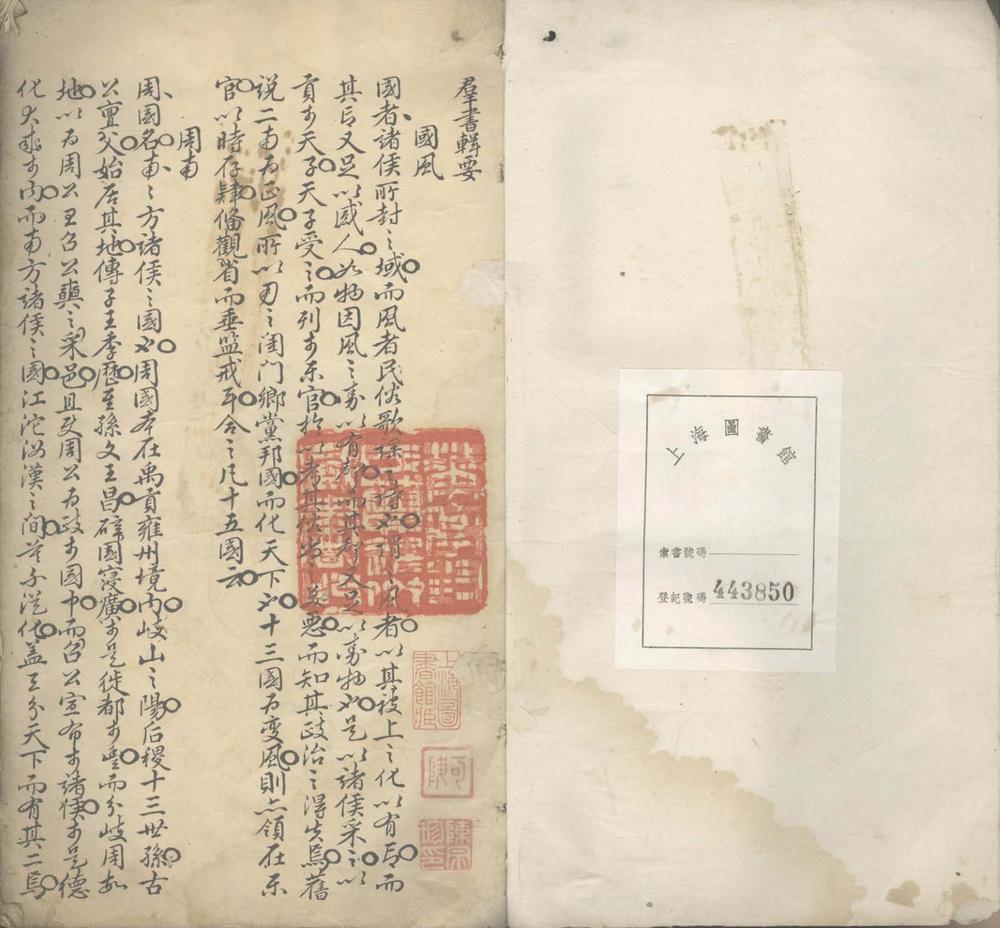 上海圖書館
索書號碼
登記號碼 443850
羣書輯要
國風
國者諸侯所封之域而風者民俗歌謠之詩也謂之風者以其被上之化以有言而
其言又足以感人如物因風之動以有聲而其聲又足以動物也是以諸侯采之以
貢於天子天子受之而列於樂官於以考其俗尚之美惡而知其政治之得失焉舊
說二南為正風所以用之閨門鄉黨邦國而化天下也十三國為變風則亦領在樂
官以時存肄備觀省而垂監戒耳合之凡十五國云
周南
周國名南南方諸侯之國也周國本在禹貢雍州境內岐山之陽后稷十三世孫古
公亶父始居其地傳子王季歷至孫文王昌辟國寖廣於是徙都於豐而分岐周故
地以為周公旦召公奭之采邑且使周公為政於國中而召公宣布於諸侯於是德
化大成於內而南方諸侯之國江沱汝漢之間莫不從化蓋三分天下而有其二焉
上海圖書館藏